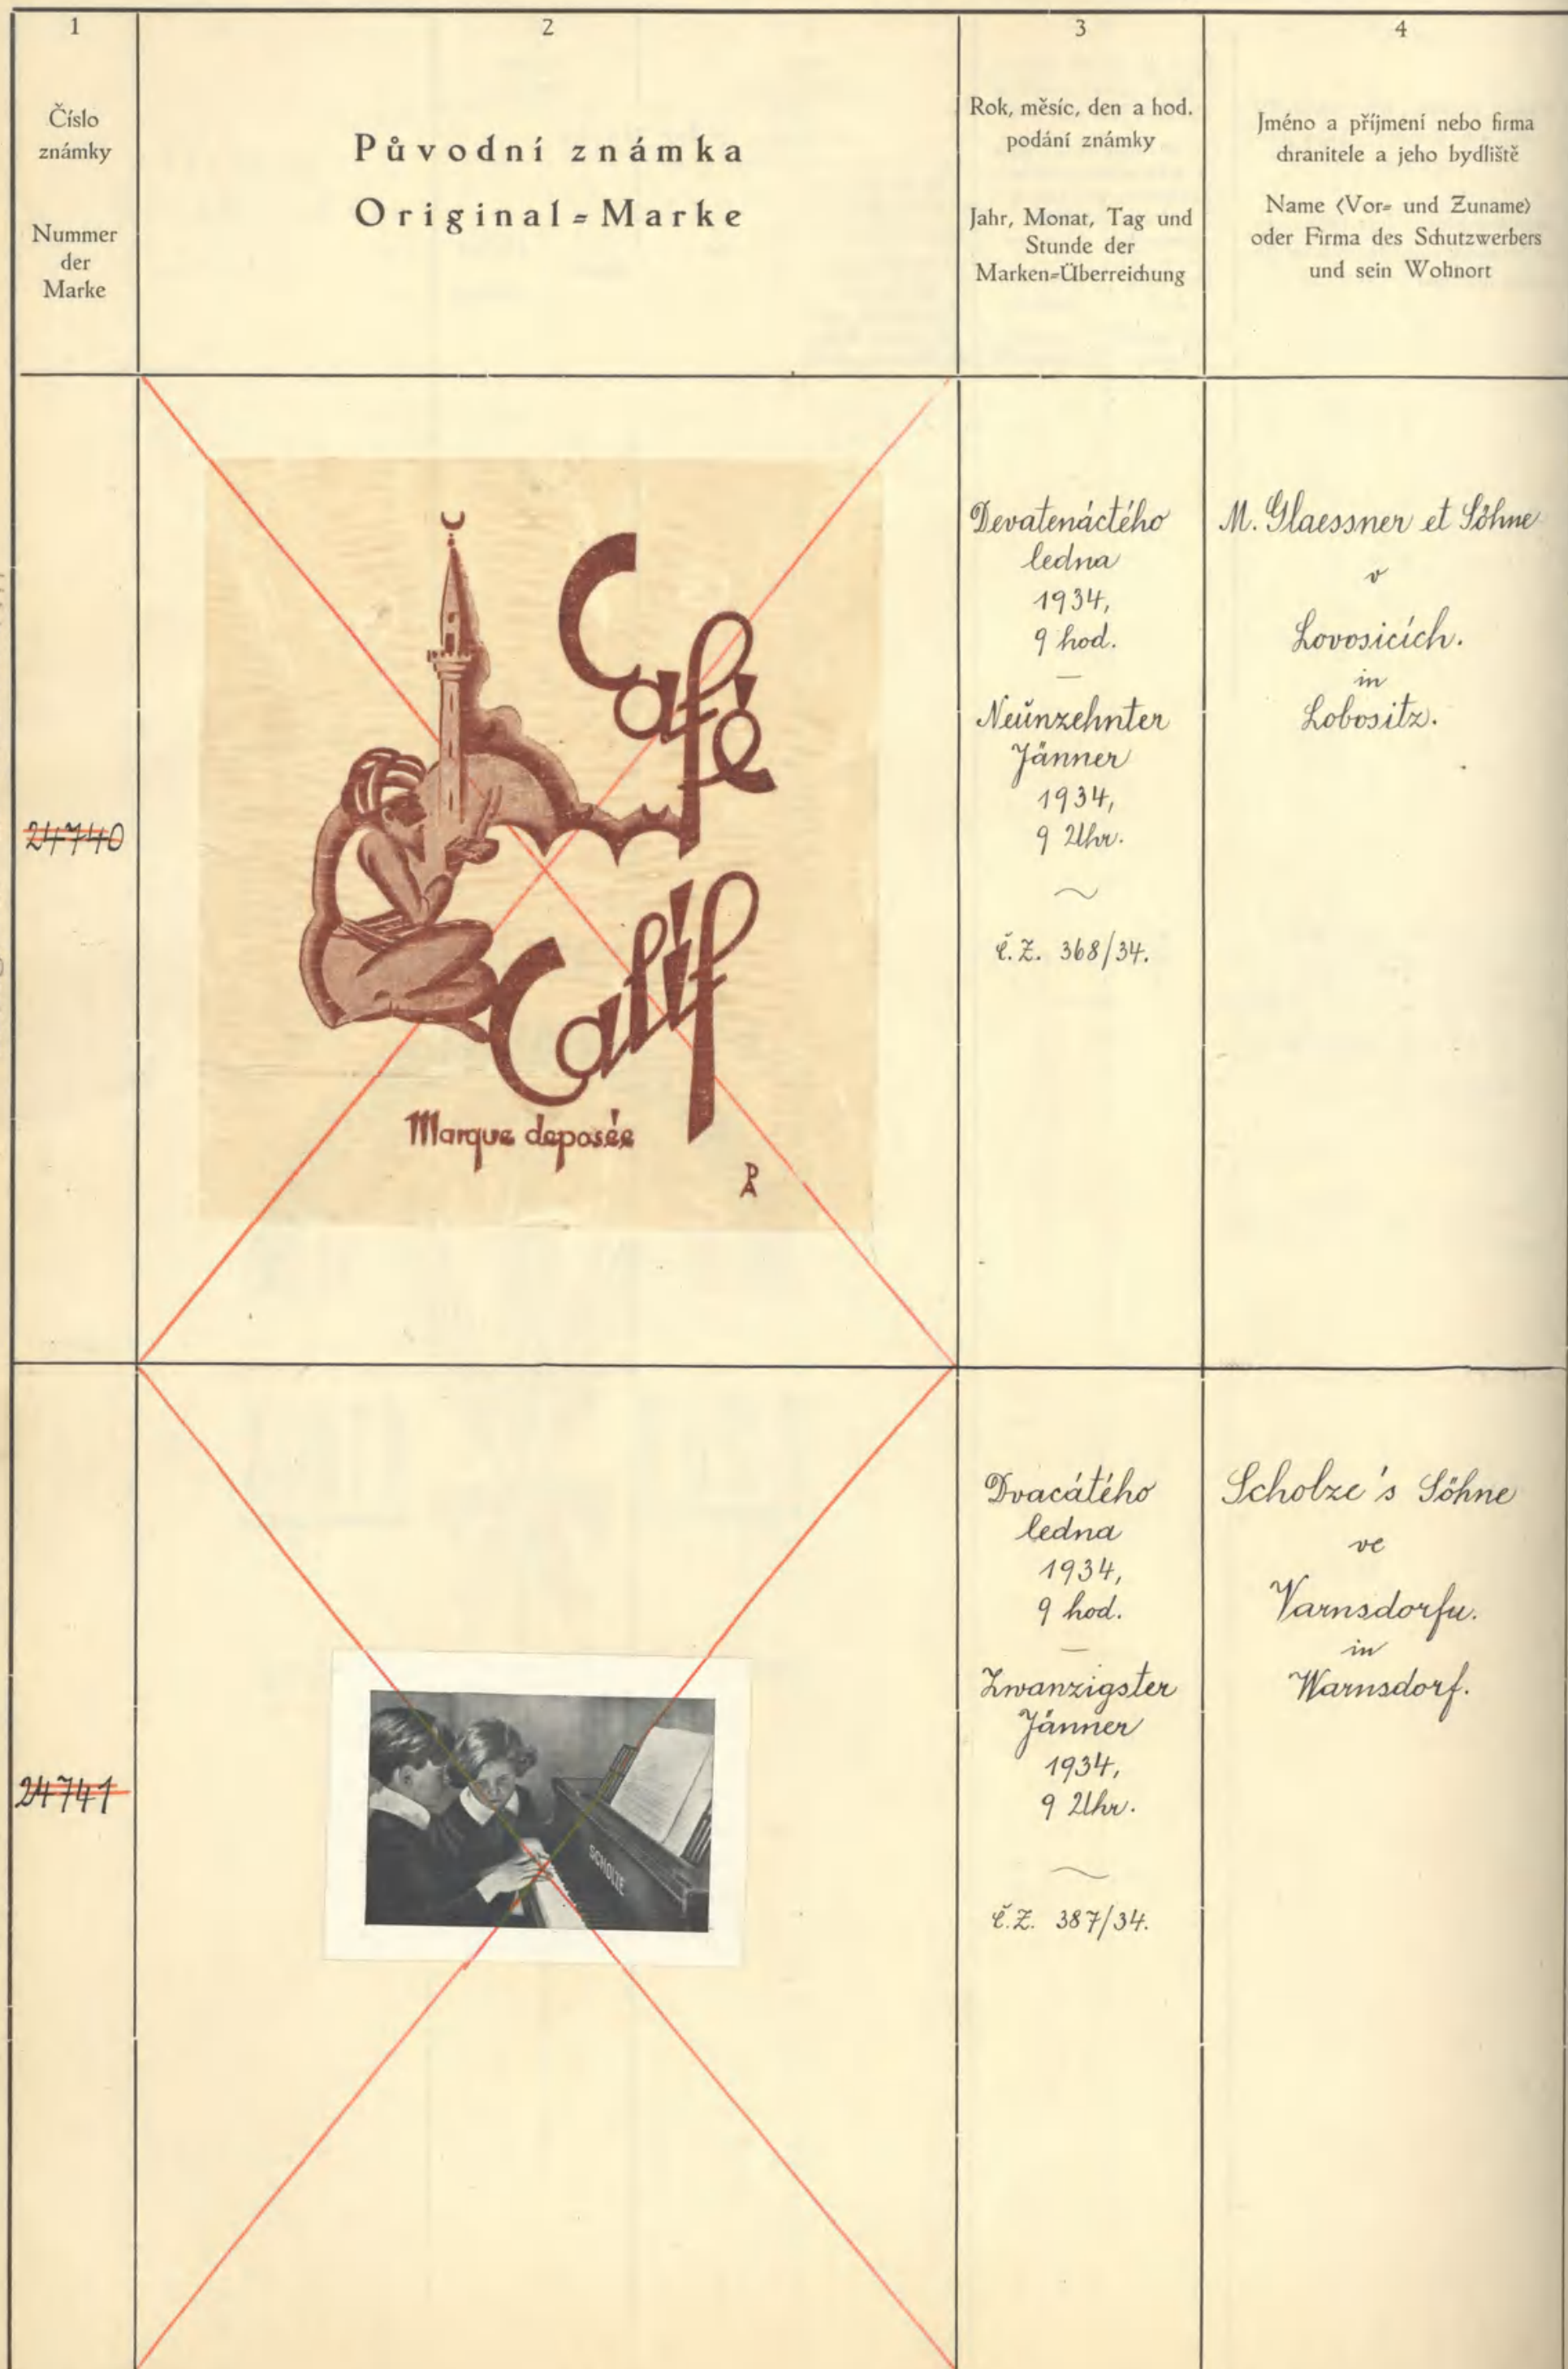 1
Číslo
známky
Nummer
der
Marke
2
Původní známka
Original=Marke
3
Rok, měsíc, den a hod.
podání známky
Jahr, Monat, Tag und
Stunde der
Marken=Überreichung
4
Jméno a příjmení nebo firma
chranitele a jeho bydliště
Name (Vor= und Zuname)
oder Firma des Schutzwerbers
und sein Wohnort
24740
Café
Calif
Marque deposée
PA
Devatenáctého
ledna
1934,
9 hod.
—
Neunzehnter
Jänner
1934,
9 Uhr.
~
č.Z. 368/34.
M. Glaessner et Söhne
v
Lovosicích.
in
Lobositz.
24741
SCHOLZE
Dvacátého
ledna
1934,
9 hod.
—
Zwanzigster
Jänner
1934,
9 Uhr.
~
č.Z. 387/34.
Scholze's Söhne
ve
Varnsdorfu.
in
Warnsdorf.